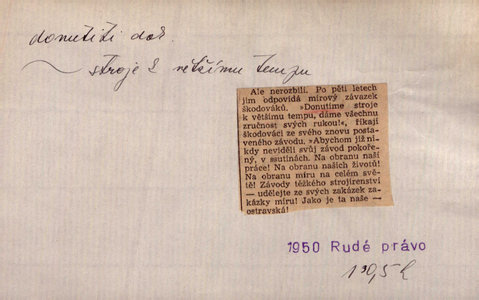 donutiti dok.
~ stroje k většímu tempu
Ale nerozbili. Po pěti letech
jim odpovídá mírový závazek
škodováků. »Donutíme stroje
k většímu tempu, dáme všechnu
zručnost svých rukou!«, říkají
škodováci ze svého znovu posta-
veného závodu. »Abychom již ni-
kdy neviděli svůj závod pokoře-
ný, v ssutinách. Na obranu naší
práce! Na obranu našich životů!
Na obranu míru na celém svě-
tě! Závody těžkého strojírenství
— udělejte ze svých zakázek za-
kázky míru! Jako je ta naše —
ostravská!
1950 Rudé právo